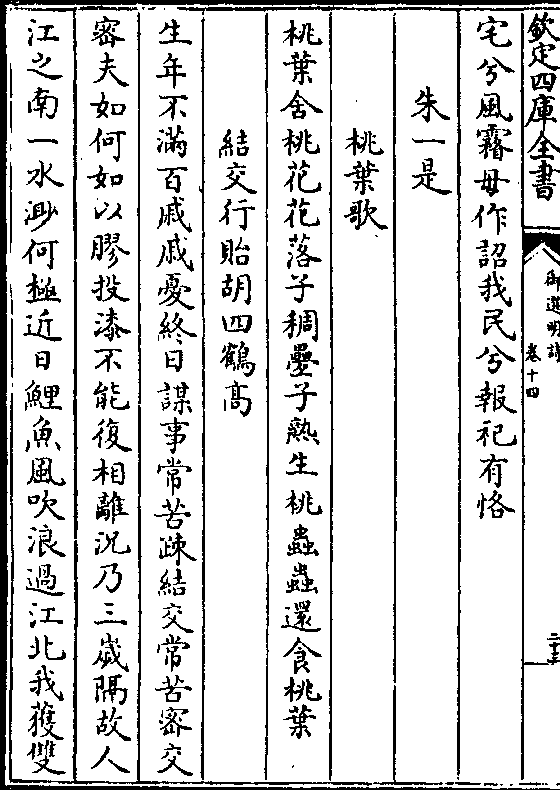 欽定四庫全書
御選明詩
卷十四
宅兮風霧毋作詔我民兮報祀有恪
朱一是
桃葉歌
桃葉舍桃花花落子稠疊子熟生桃蟲蟲還食桃葉
結交行貽胡四鶴高
生年不滿百戚戚憂終日謀事常苦疎結交常苦密交
密夫如何如以膠投漆不能復相離況乃三歲隔故人
江之南一水渺何極近日鯉魚風吹浪過江北我獲雙